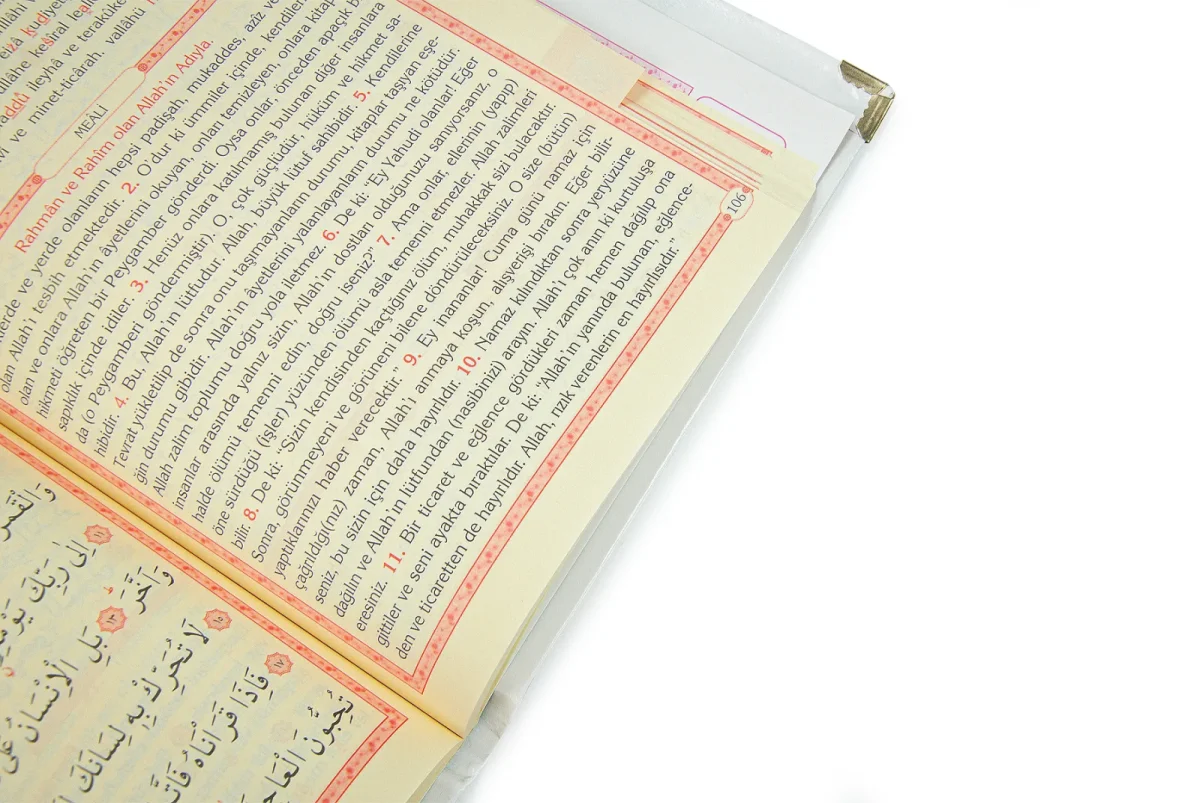 kudiyeti
eizâ
kesîral leallekum
ullâhe
addû ileyhâ ve terakûke
vi ve minet-ticârah, vallâhü
MEÂLİ
Rahmân ve Rahîm olan Allah'ın Adıyla.
lerde ve yerde olanların hepsi padişah, mukaddes, azîz ve
olan Allah'ı tesbih etmektedir. 2. O'dur ki ümmiler içinde, kendiler
olan ve onlara Allah'ın âyetlerini okuyan, onları temizleyen, onlara kitap
hikmeti öğreten bir Peygamber gönderdi. Oysa onlar, önceden apaçık b
sapıklık içinde idiler. 3. Henüz onlara katılmamış bulunan diğer insanlara
da (o Peygamberi göndermiştir) O, çok güçlüdür, hüküm ve hikmet sa-
hibidir. 4. Bu, Allah'ın lütfudur. Allah, büyük lütuf sahibidir. 5. Kendilerine
Tevrat yükletilip de sonra onu taşımayanların durumu, kitaplar taşıyan eşe-
ğin durumu gibidir. Allah'ın âyetlerini yalanlayanların durumu ne kötüdür.
Allah zalim toplumu doğru yola iletmez. 6. De ki: "Ey Yahudi olanlar! Eğer
insanlar arasında yalnız sizin, Allah'ın dostları olduğunuzu sanıyorsanız, o
halde ölümü temenni edin, doğru iseniz?" 7. Ama onlar, ellerinin (yapıp)
öne sürdüğü (işler) yüzünden ölümü asla temenni etmezler. Allah zâlimleri
bilir. 8. De ki: "Sizin kendisinden kaçtığınız ölüm, muhakkak sizi bulacaktır.
Sonra, görünmeyeni ve görüneni bilene döndürüleceksiniz. O size (bütün)
yaptıklarınızı haber verecektir." 9. Ey inananlar! Cuma günü namaz için
çağrıldığı(nız) zaman, Allah'ı anmaya koşun, alışverişi bırakın. Eğer bilir-
seniz, bu sizin için daha hayırlıdır. 10. Namaz kılındıktan sonra yeryüzüne
dağılın ve Allah'ın lütfundan (nasibinizi) arayın. Allah'ı çok anın ki kurtuluşa
eresiniz. 11. Bir ticaret ve eğlence gördükleri zaman hemen dağılıp ona
gittiler ve seni ayakta bıraktılar. De ki: "Allah'ın yanında bulunan, eğlence-
den ve ticaretten de hayırlıdır. Allah, rızık verenlerin en hayırlısıdır."
106
وَالْقَمَرُ
١١ اِلٰى رَبِّكَ يَوْمَئِذٍ
وَاَخَّرَ ١٣ بَلِ الْاِنْسَانُ عَلٰى
١٥ لَا تُحَرِّكْ بِهٖ لِسَانَكَ
١٧ فَاِذَا قَرَاْنَاهُ فَاتَّبِعْ
تُحِبُّونَ الْعَاجِ